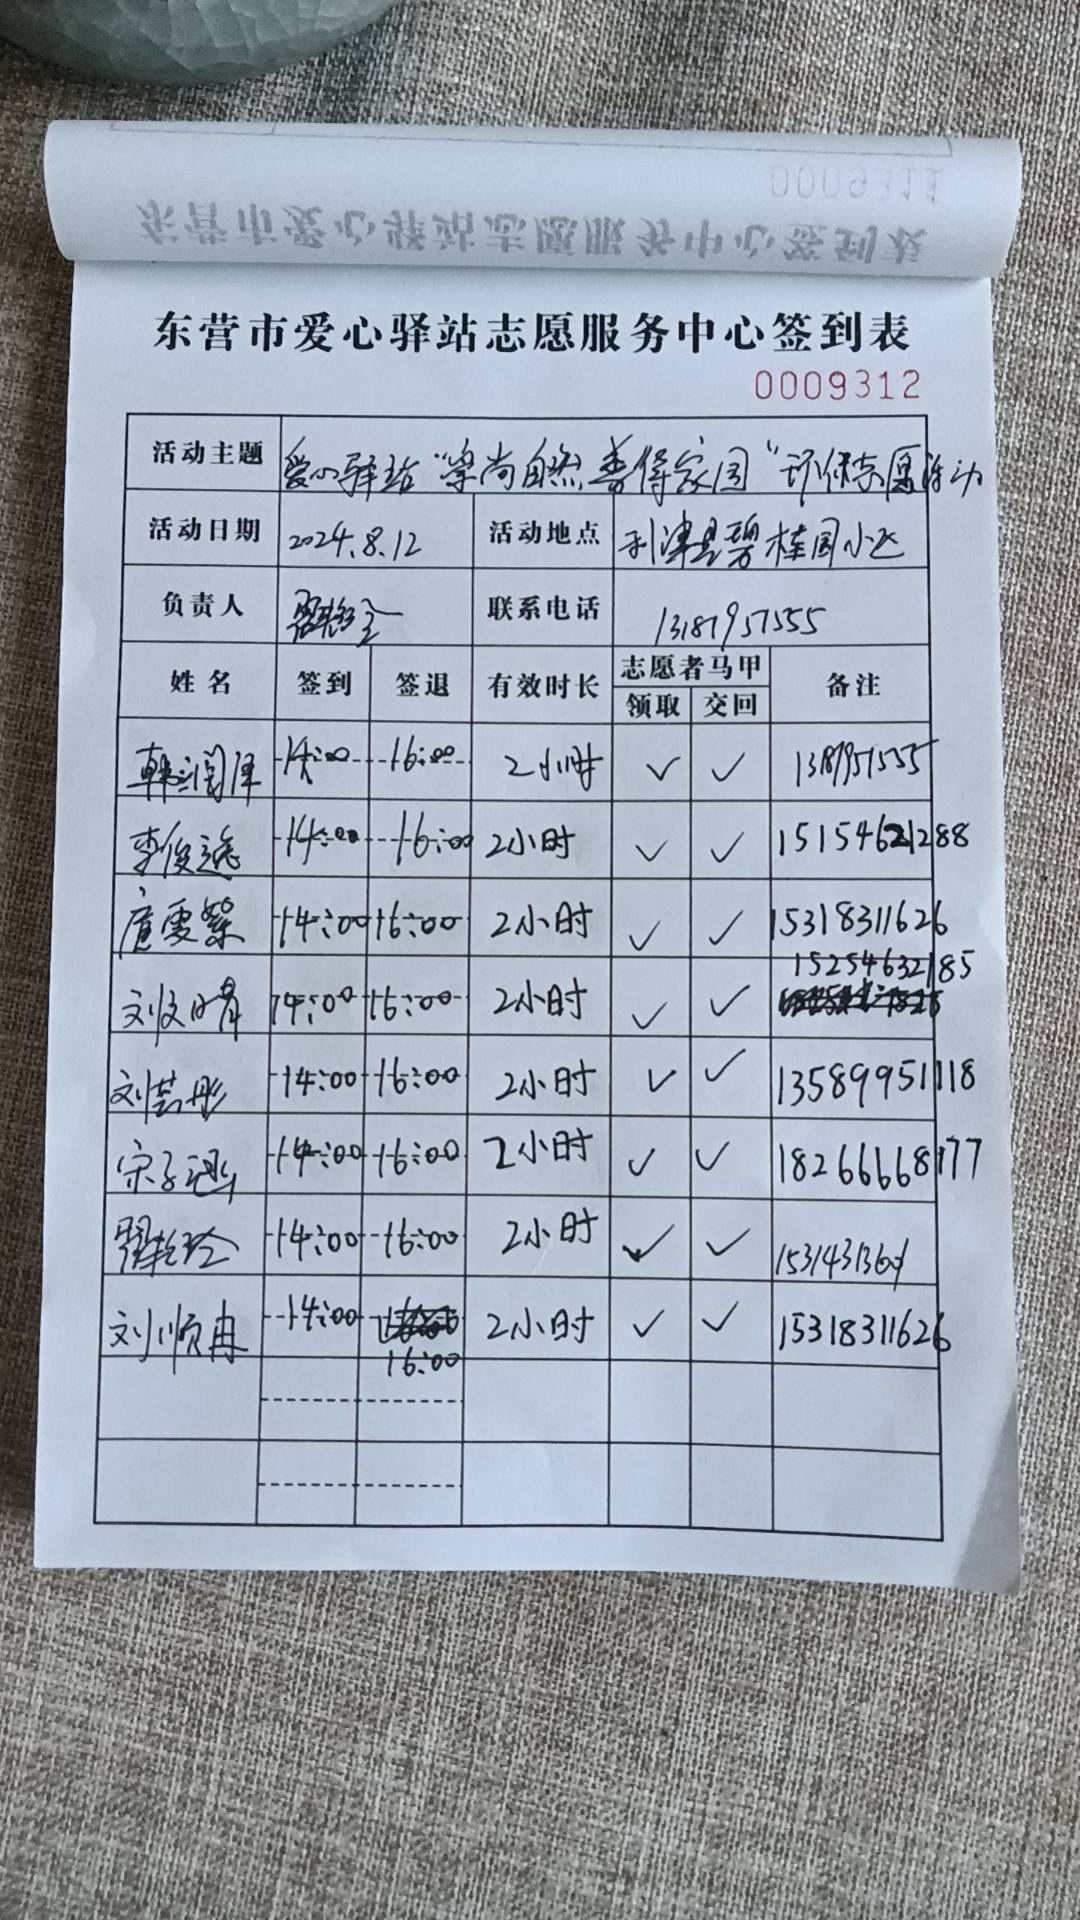 东营市爱心驿站志愿服务中心签到表
0009312
活动主题 爱心驿站“崇尚自然 善待家园”环保志愿活动
活动日期 2024.8.12 活动地点 利津县碧桂园小区
负责人 联系电话 13187957555
姓名 签到 签退 有效时长 志愿者马甲 领取 交回 备注
韩润泽 14:00 16:00 2小时 ✓ ✓
李俊逸 14:00 16:00 2小时 ✓ ✓ 15154621288
扈雯馨 14:00 16:00 2小时 ✓ ✓ 15318311626
刘文晴 14:00 16:00 2小时 ✓ ✓ 15254632185
刘芸彤 14:00 16:00 2小时 ✓ ✓ 13589951118
宋子涵 14:00 16:00 2小时 ✓ ✓ 18266668177
14:00 16:00 2小时 ✓ ✓
刘顺冉 14:00 16:00 2小时 ✓ ✓ 15318311626